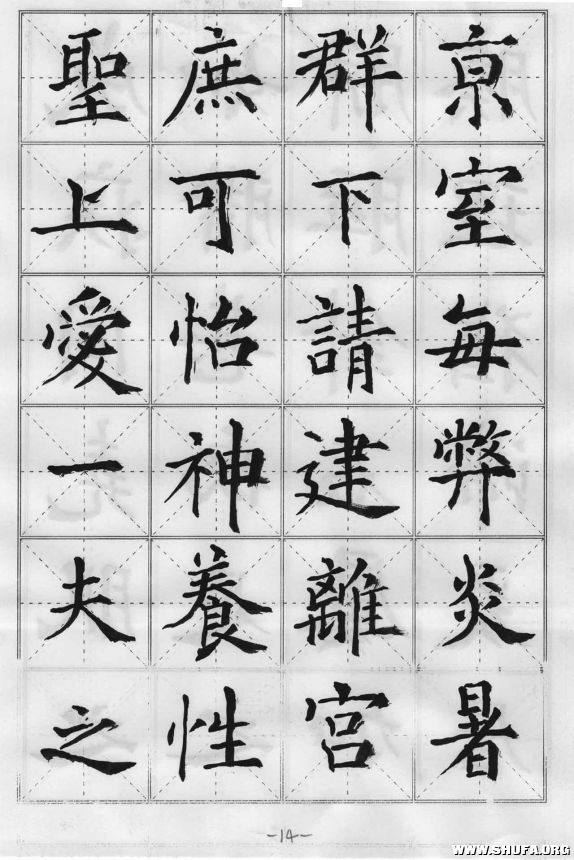 京室每弊炎暑
群下請建離宮
庶可怡神養性
聖上愛一夫之
-14-
WWW.SHUFA.ORG